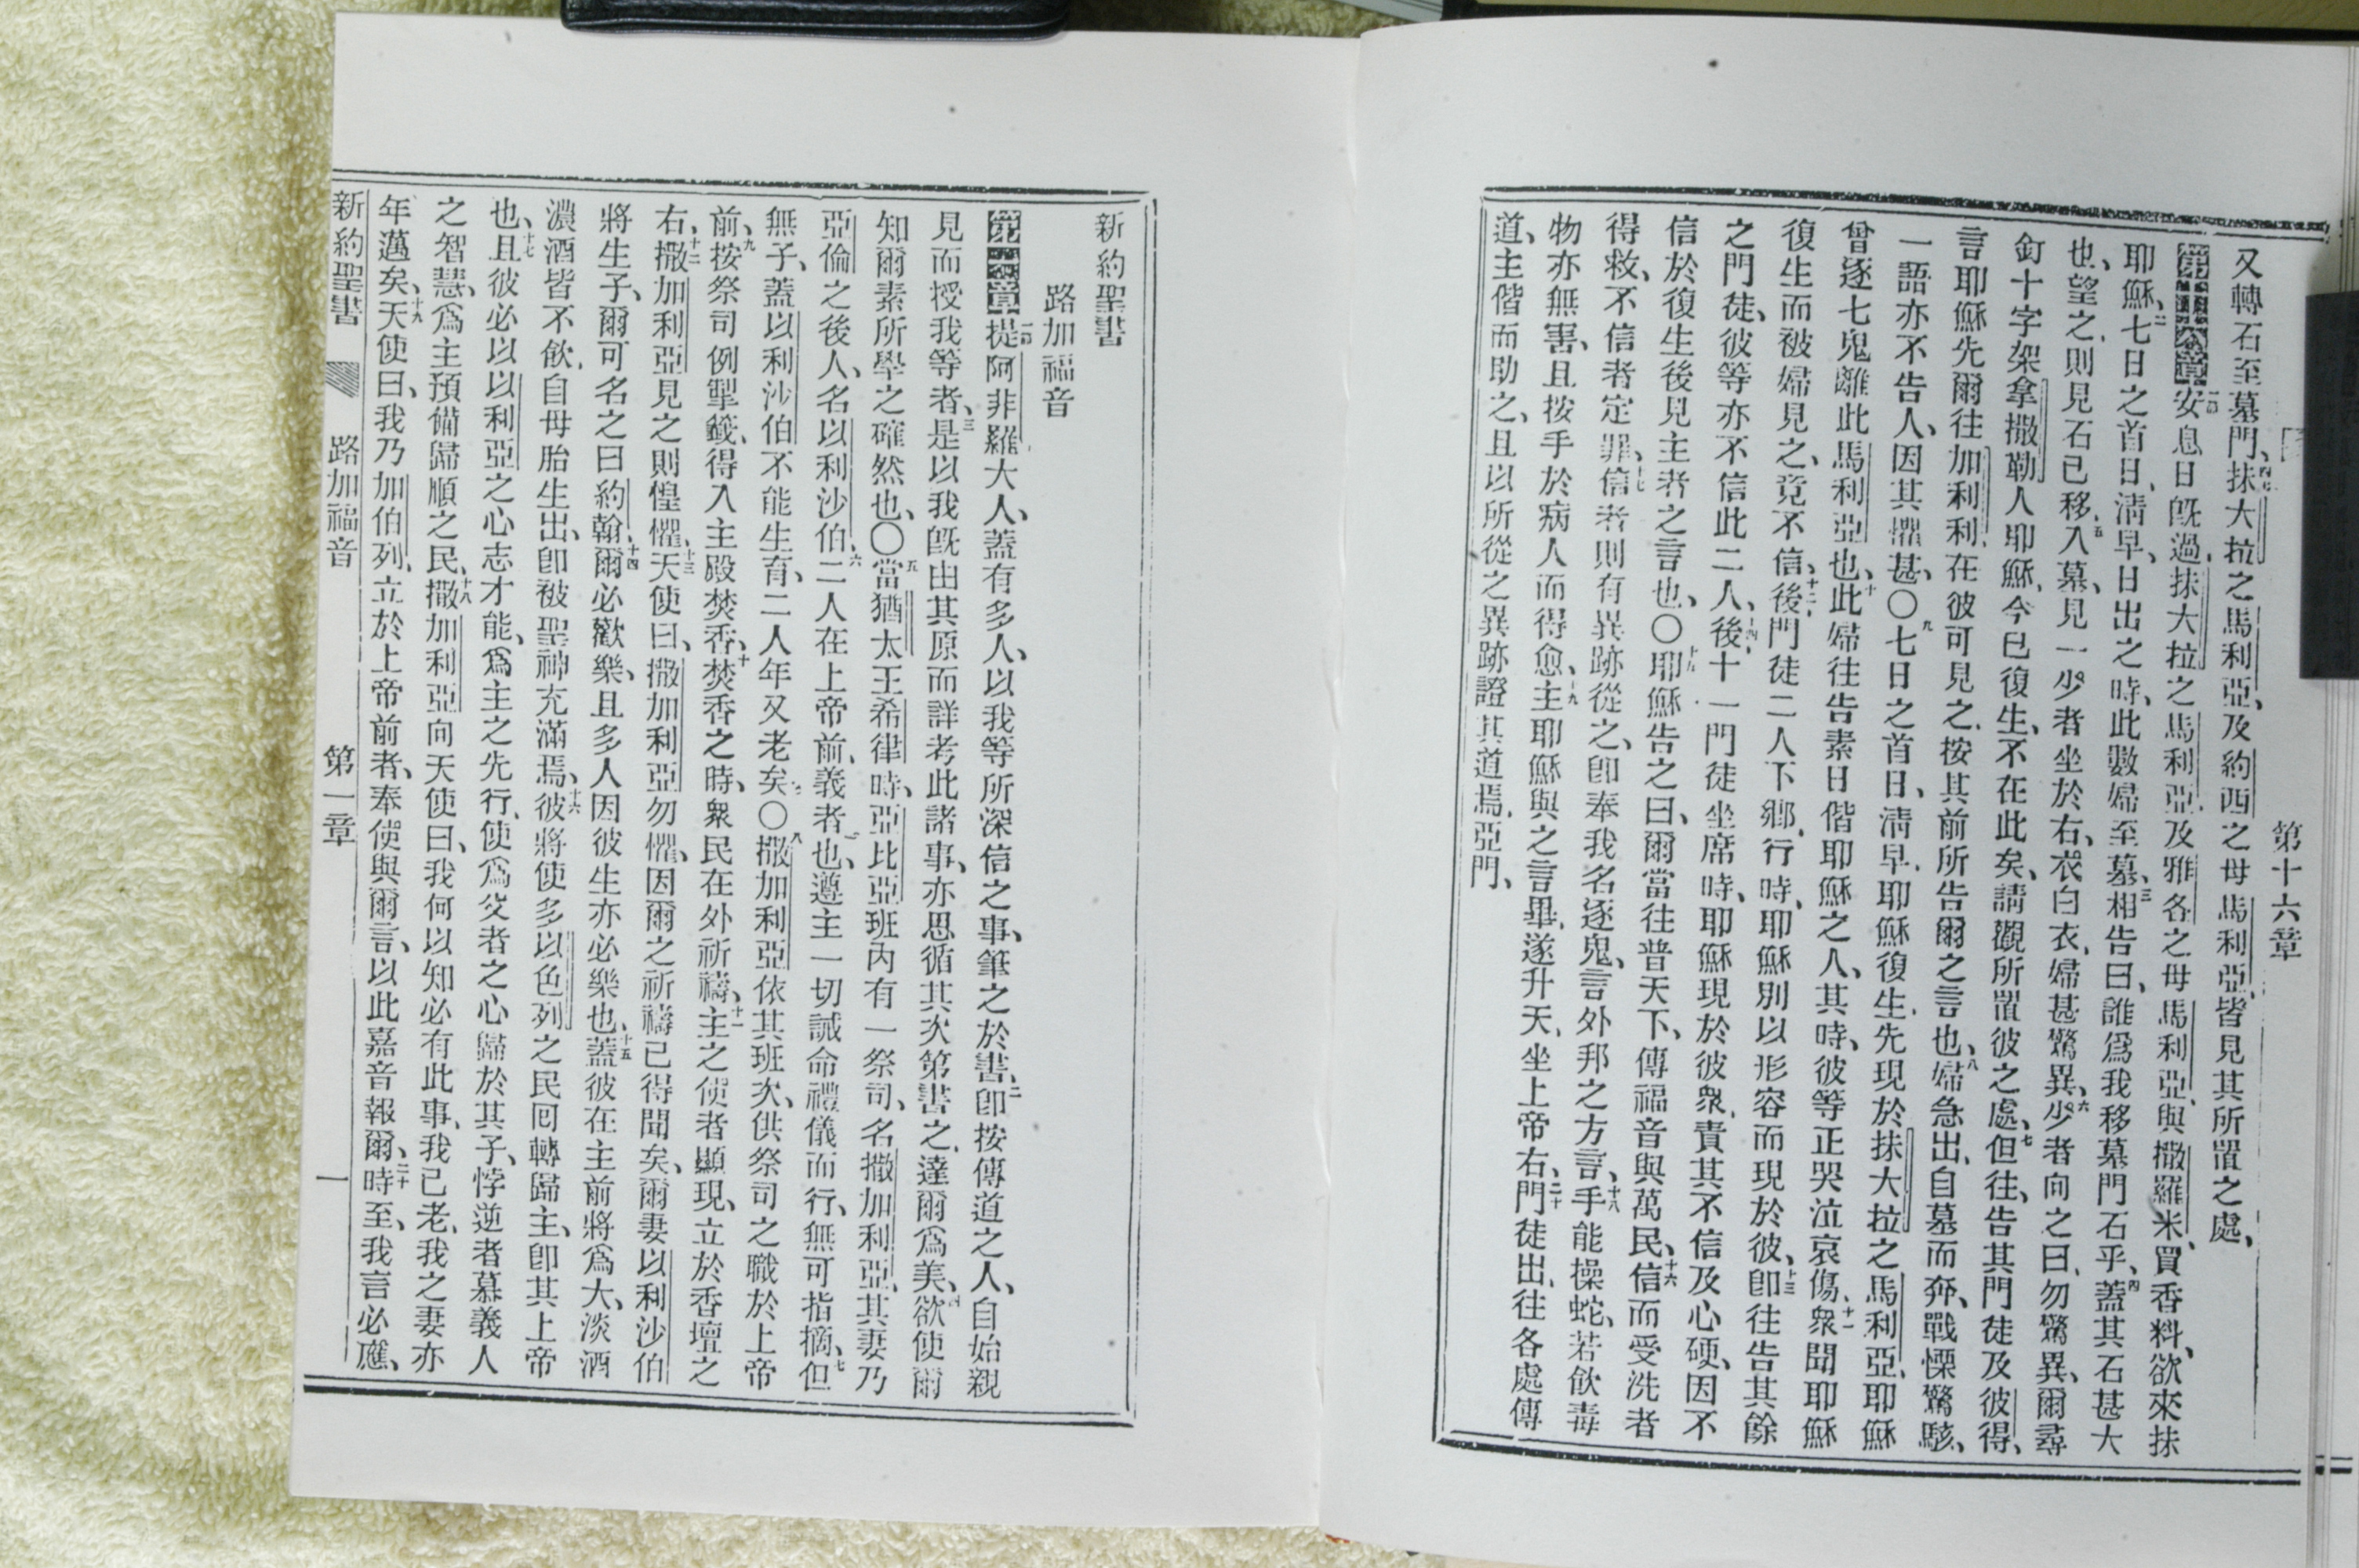 第十六章
又轉石至墓門、四七抹大拉之馬利亞、及約西之母馬利亞、皆見其所置之處、
第十六章一節安息日旣過、抹大拉之馬利亞、及雅各之母馬利亞、與撒羅米、買香料、欲來抹
耶穌、二七日之首日、淸早、日出之時、此數婦至墓、三相告曰、誰爲我移墓門石乎、四蓋其石甚大
也、望之、則見石已移、五入墓、見一少者坐於右、衣白衣、婦甚驚異、六少者向之曰、勿驚異、爾尋
釘十字架拿撒勒人耶穌、今已復生、不在此矣、請觀所置彼之處、七但往、告其門徒及彼得、
言耶穌先爾往加利利、在彼可見之、按其前所告爾之言也、八婦急出、自墓而奔、戰慄驚駭、
一語亦不告人、因其懼甚、〇九七日之首日、淸早、耶穌復生、先現於抹大拉之馬利亞、耶穌
曾逐七鬼離此馬利亞也、十此婦往告素日偕耶穌之人、其時、彼等正哭泣哀傷、十一衆聞耶穌
復生而被婦見之、竟不信、十二後門徒二人下鄉、行時、耶穌別以形容而現於彼、十三卽往告其餘
之門徒、彼等亦不信此二人、十四後十一門徒坐席時、耶穌現於彼衆、責其不信及心硬、因不
信於復生後見主者之言也、〇十五耶穌告之曰、爾當往普天下、傳福音與萬民、十六信而受洗者
得救、不信者定罪、十七信者則有異跡從之、卽奉我名逐鬼、言外邦之方言、十八手能操蛇、若飮毒
物亦無害、且按手於病人而得愈、十九主耶穌與之言畢、遂升天、坐上帝右、二十門徒出、往各處傳
道、主偕而助之、且以所從之異跡證其道焉、亞門、
新約聖書
路加福音
第一章一節提阿非羅大人、蓋有多人、以我等所深信之事、筆之於書、二卽按傳道之人、自始親
見而授我等者、三是以我旣由其原而詳考此諸事、亦思循其次第書之、達爾爲美、四欲使爾
知爾素所學之確然也、〇五當猶太王希律時、亞比亞班內有一祭司、名撒加利亞、其妻乃
亞倫之後人、名以利沙伯、六二人在上帝前、義者也、遵主一切誡命禮儀而行、無可指摘、七但
無子、蓋以利沙伯不能生育、二人年又老矣、〇八撒加利亞依其班次、供祭司之職於上帝
前、九按祭司例掣籤、得入主殿焚香、十焚香之時、衆民在外祈禱、十一主之使者顯現、立於香壇之
右、十二撒加利亞見之則惶懼、十三天使曰、撒加利亞勿懼、因爾之祈禱已得聞矣、爾妻以利沙伯
將生子、爾可名之曰約翰、十四爾必歡樂、且多人因彼生亦必樂也、十五蓋彼在主前將爲大、淡酒
濃酒皆不飮、自母胎生出、卽被聖神充滿焉、十六彼將使多以色列之民囘轉歸主、卽其上帝
也、十七且彼必以以利亞之心志才能、爲主之先行、使爲父者之心歸於其子、悖逆者慕義人
之智慧、爲主預備歸順之民、十八撒加利亞向天使曰、我何以知必有此事、我已老、我之妻亦
年邁矣、十九天使曰、我乃加伯列、立於上帝前者、奉使與爾言、以此嘉音報爾、二十時至、我言必應、
新約聖書 路加福音 第一章 一